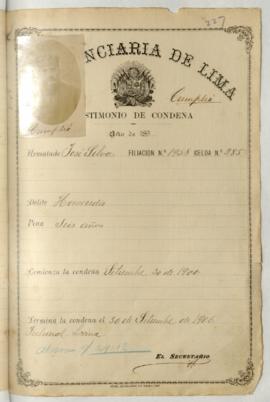 227
NCIARIA DE LIMA
Cumplió
STIMONIO DE CONDENA
Cumplió
Año de 189
Rematado José Silva FILIACIÓN N.º CELDA N.º 285
Delito Homicidio
Pena Seis años
Comienza la condena Setiembre 30 de 1900
Termina la condena el 30 de Setiembre de 1906
Tribunal
EL SECRETARIO